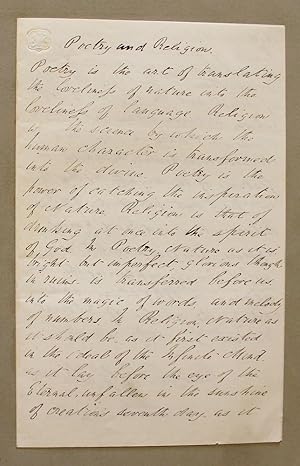 Poetry and Religion.
Poetry is the art of translating
the loveliness of nature into the
loveliness of language Religion
is the science by which the
human character is transformed
into the divine. Poetry is the
power of catching the inspiration
of Nature Religion is that of
drinking at once into the spirit
of God In Poetry Nature as it is
bright but imperfect glorious though
in ruins is transferred before us
into the magic of words and melody
of numbers In Religion, Nature as
it should be, as it first existed
in the ideal of the Infinite Mind
as it lay before the eye of the
Eternal, unfallen in the sunshine
of creation's seventh day, as it